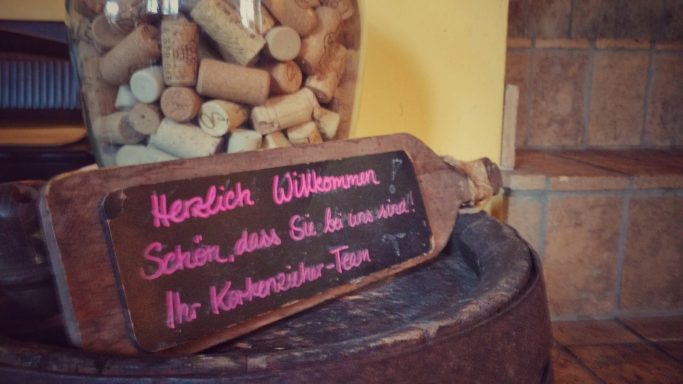 Herzlich Willkommen!
Schön, dass Sie bei uns sind!
Ihr Korkenzieher-Team